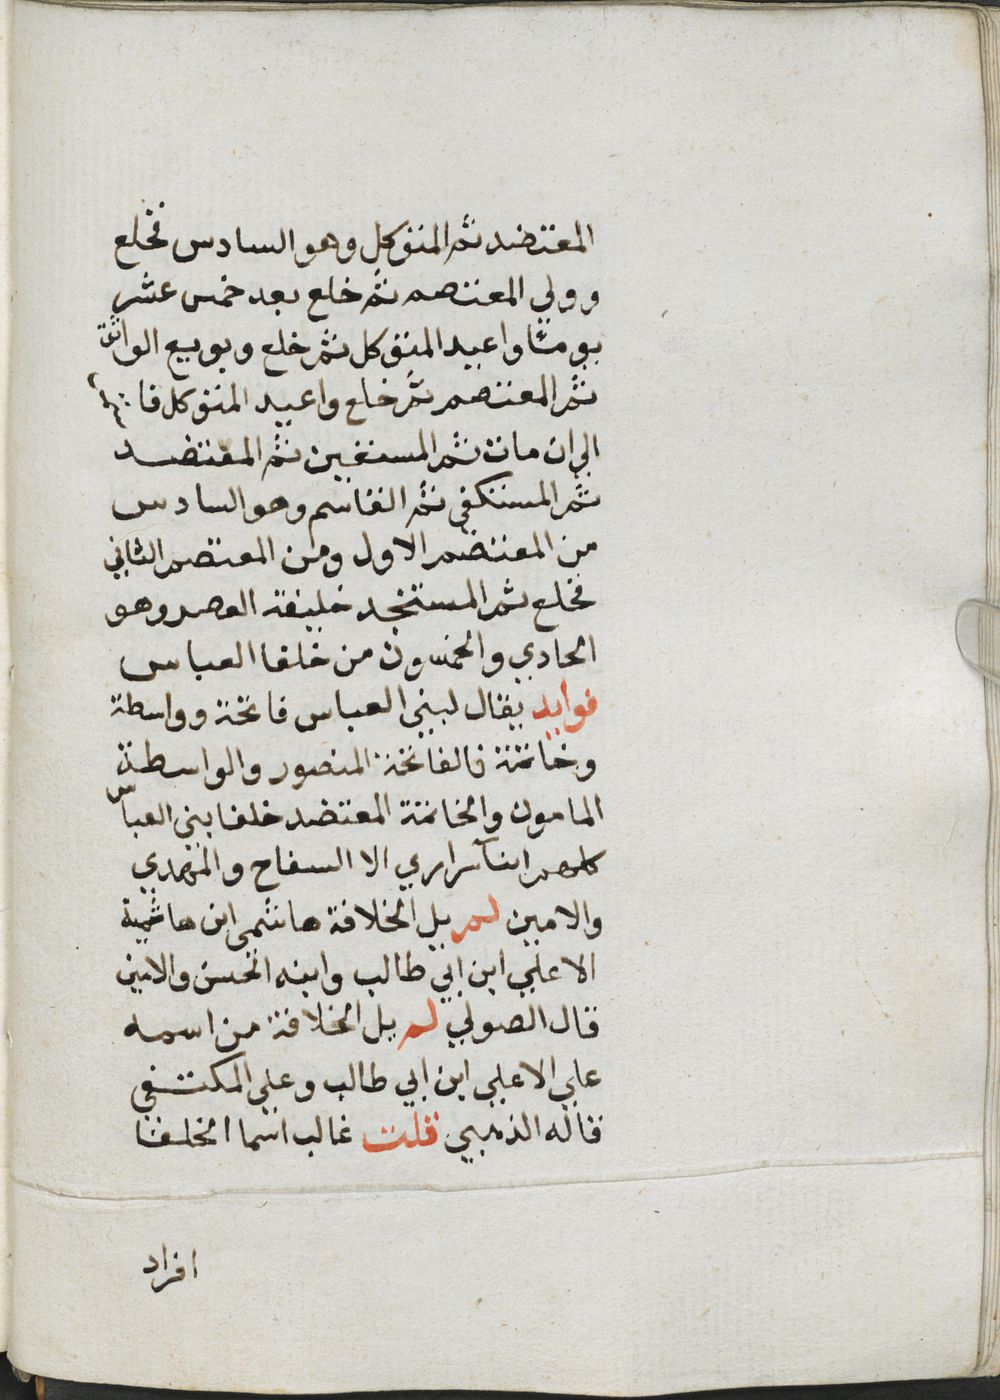 المعتضد ثم المتوكل وهو السادس فخلع
وولي المعتصم ثم خلع بعد خمس عشر
يوما واعيد المتوكل ثم خلع وبويع الواثق
ثم المعتصم ثم خلع واعيد المتوكل فا
الى ان مات ثم المستعين ثم المعتضد
ثم المستكفي ثم القاسم وهو السادس
من المعتصم الاول ومن المعتصم الثاني
فخلع ثم المستنجد خليفة العصر وهو
الحادي والخمسون من خلفا العباس
فوايد يقال لبني العباس فاتحة وواسطة
وخاتمة فالفاتحة المنصور والواسطة
المامون والخاتمة المعتضد خلفا بني العباس
كلهم ابنآ سراري الا السفاح والمهدي
والامين لم يل الخلافة هاشمى ابن هاشمية
الا علي ابن ابي طالب وابنه الحسن والامين
قال الصولي لم يل الخلافة من اسمه
علي الا علي ابن ابي طالب وعلي المكتفي
قاله الذهبي قلت غالب اسما الخلفا
افراد